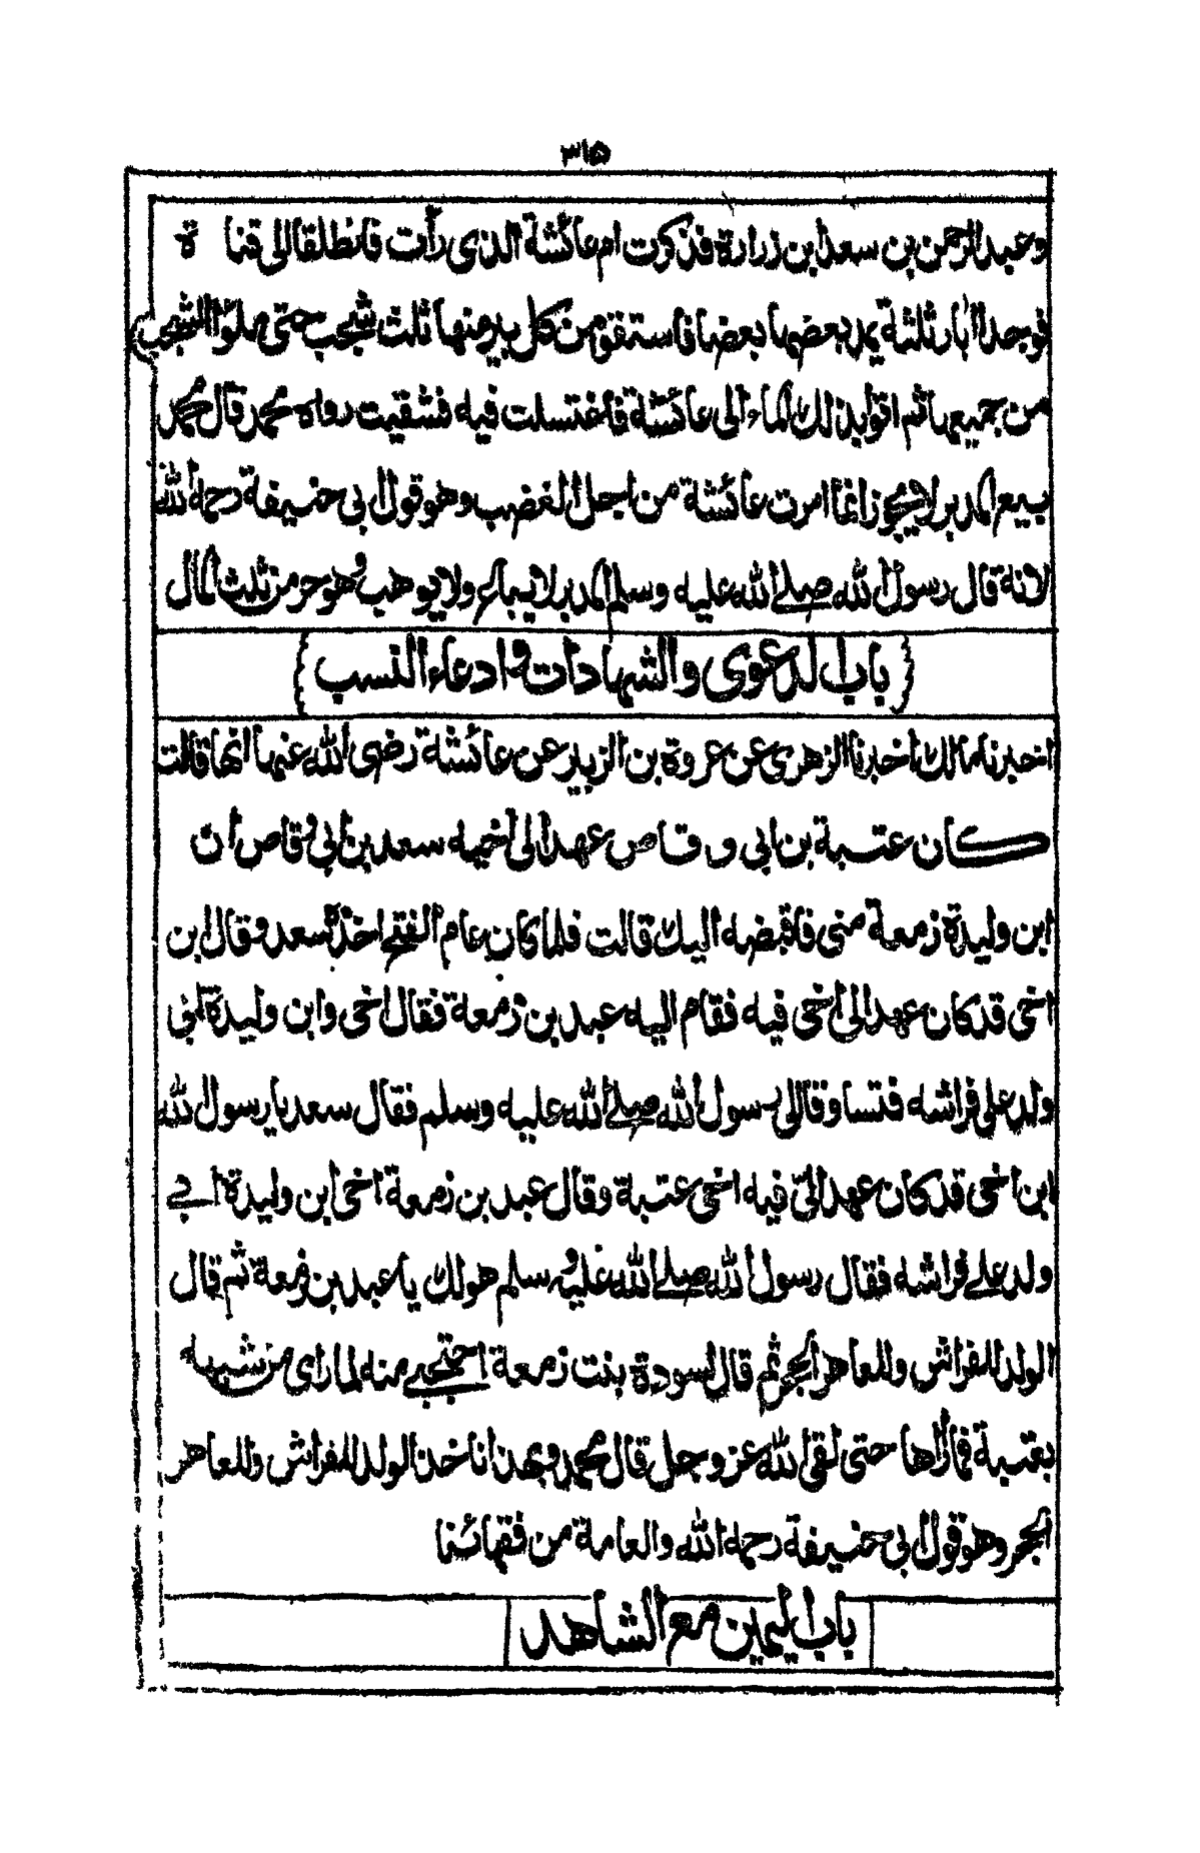 ٣١٥
وعبد الرحمن بن سعد ابن زرارة فذكرت ام عائشة الذى رأت فانطلقا الى قناة
فوجدا آبار ثلثة يمد بعضها بعضا فاستقوا من كل بير منها ثلث شجب حتى ملؤا الشجب
من جميعها ثم اتوا بذلك الماء الى عائشة فاغتسلت فيه فشقيت رواه محمد قال محمد
بيع المدبر لا يجوز انما امرت عائشة من اجل الغضب وهو قول ابى حنيفة رحمه الله
لانه قال رسول الله صلے الله عليه وسلم المدبر لا يباع ولا يوهب وهو حر من ثلث المال
باب الدعوى والشهادات و ادعاء النسب
اخبرنا مالك اخبرنا الزهرى عن عروة بن الزبير عن عائشة رضى الله عنها انها قالت
كان عتبة بن ابى وقاص عهد الى اخيه سعد بن ابى وقاص ان
ابن وليدة زمعة منى فاقبضه اليك قالت فلما كان عام الفتح اخذه سعد وقال ابن
اخى قد كان عهد الى اخى فيه فقام اليه عبد بن زمعة فقال اخى وابن وليدة ابى
ولد على فراشه فتساوقا الى رسول الله صلے الله عليه وسلم فقال سعد يا رسول الله
ابن اخى قد كان عهد الىّ فيه اخى عتبة وقال عبد بن زمعة اخى ابن وليدة ابے
ولد علے فراشه فقال رسول الله صلے الله عليه وسلم هو لك يا عبد بن زمعة ثم قال
الولد للفراش وللعاهر الحجر ثم قال لسودة بنت زمعة احتجبے منه لما راى من شبهه
بعتبة فما رأها حتى لقى الله عز وجل قال محمد وبهذا ناخذ الولد للفراش وللعاهر
الحجر وهو قول ابى حنيفة رحمه الله والعامة من فقهائنا
باب اليمين مع الشاهد